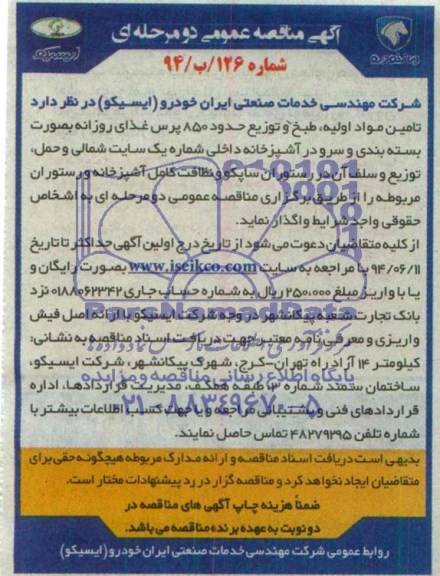 آگهی مناقصه عمومی دو مرحله ای
شماره ۱۲۶/ب/۹۴
ایران خودرو
ایسیکو
شرکت مهندسی خدمات صنعتی ایران خودرو (ایسیکو) در نظر دارد
تامین مواد اولیه، طبخ و توزیع حدود ۸۵۰ پرس غذای روزانه بصورت
بسته بندی و سرو در آشپزخانه داخلی شماره یک سایت شمالی و حمل،
توزیع و سلف آن در رستوران ساپکو و نظافت کامل آشپزخانه و رستوران
مربوطه را از طریق برگزاری مناقصه عمومی دو مرحله ای به اشخاص
حقوقی واجد شرایط واگذار نماید.
از کلیه متقاضیان دعوت می شود از تاریخ درج اولین آگهی حداکثر تا تاریخ
۹۴/۰۶/۱۱ با مراجعه به سایت www.iseikco.com بصورت رایگان و
یا با واریز مبلغ ۲۵۰،۰۰۰ ریال به شماره حساب جاری ۰۱۸۸۰۶۲۳۴۲ نزد
بانک تجارت شعبه پیکانشهر در وجه شرکت ایسیکو با ارائه اصل فیش
واریزی و معرفی نامه معتبر جهت دریافت اسناد مناقصه به نشانی:
کیلومتر ۱۴ آزادراه تهران-کرج، شهرک پیکانشهر، شرکت ایسیکو،
ساختمان سمند شماره ۳، طبقه همکف، مدیریت قراردادها، اداره
قراردادهای فنی و پشتیبانی مراجعه و یا جهت کسب اطلاعات بیشتر با
شماره تلفن ۴۸۲۷۹۲۹۵ تماس حاصل نمایند.
پایگاه اطلاع رسانی مناقصه و مزایده
۰۲۱-۸۸۳۴۹۶۷۰-۵
بدیهی است دریافت اسناد مناقصه و ارائه مدارک مربوطه هیچگونه حقی برای
متقاضیان ایجاد نخواهد کرد و مناقصه گزار در رد پیشنهادات مختار است.
ضمناً هزینه چاپ آگهی های مناقصه در
دو نوبت به عهده برنده مناقصه می باشد.
روابط عمومی شرکت مهندسی خدمات صنعتی ایران خودرو (ایسیکو)